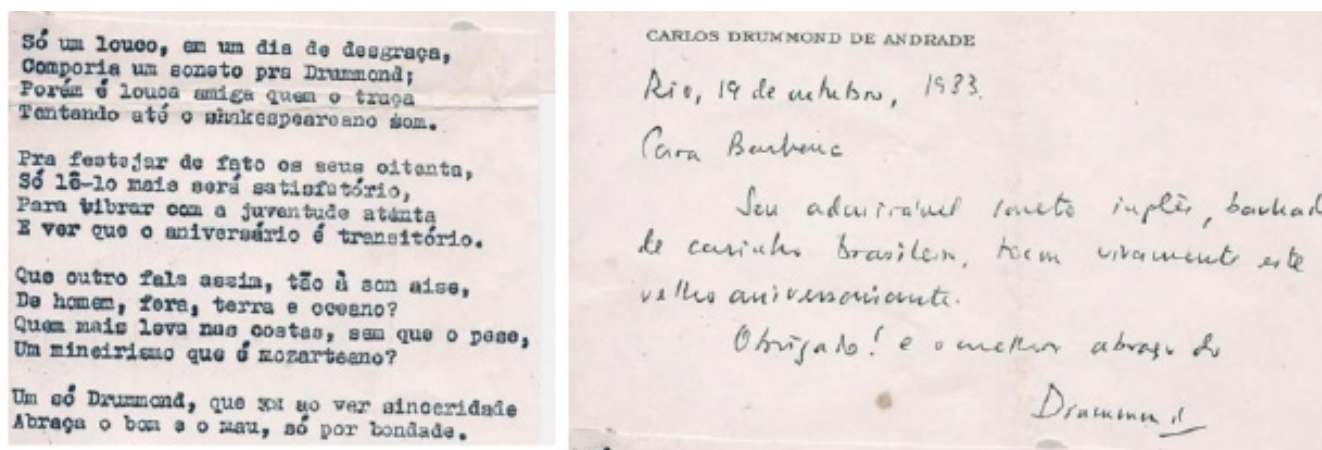 Só um louco, em um dia de desgraça,
Comporia um soneto pra Drummond;
Porém é louca amiga quem o traça
Tentando até o shakespeareano som.
Pra festejar de fato os seus oitenta,
Só lê-lo mais será satisfatório,
Para vibrar com a juventude atenta
E ver que o aniversário é transitório.
Que outro fala assim, tão à son aise,
De homem, fera, terra e oceano?
Quem mais leva nas costas, sem que o pese,
Um mineirismo que é mozarteano?
Um só Drummond, que ao ver sinceridade
Abraça o bom e o mau, só por bondade.
CARLOS DRUMMOND DE ANDRADE
Rio, 19 de outubro, 1983.
Cara Barbara
Seu admirável soneto inglês, banhad
de carinho brasileiro, tocou vivamente este
velho aniversariante.
Obrigado! e o melhor abraço do
Drummond